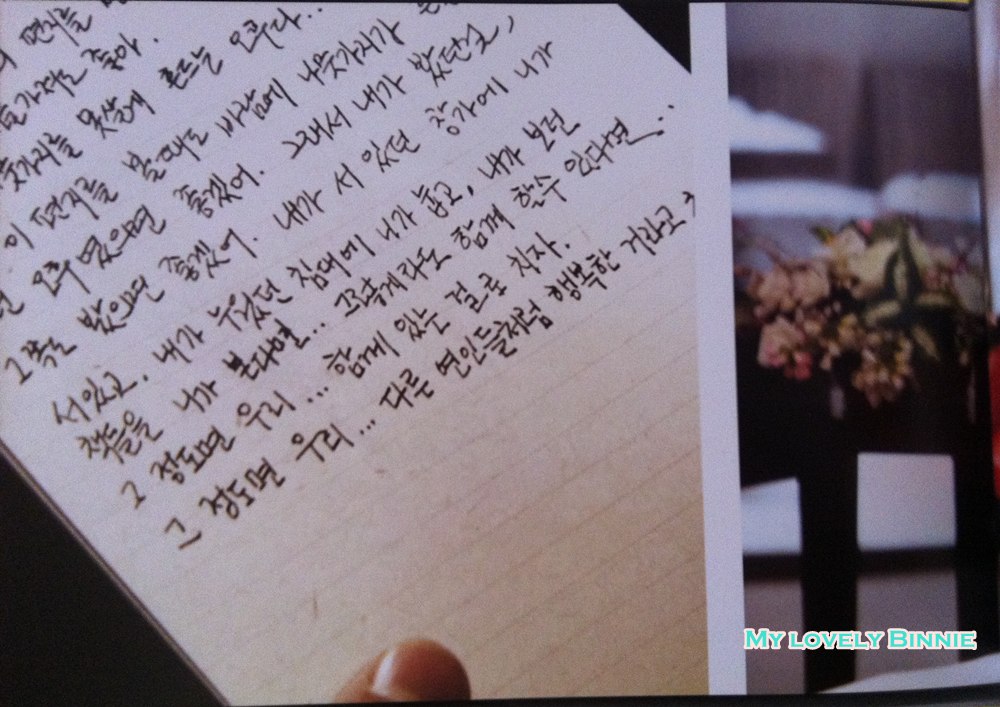 편지를
좋아.
못살게 흔드는 오후다...
이 편지를 볼때도 바람에 나뭇가지가
오후 였으면 좋겠어. 그래서 내가 봤던걸,
그쪽도 봤으면 좋겠어. 내가 서 있던 창가에 니가
서있고, 내가 누웠던 침대에 니가 눕고, 내가 보던
책들을 니가 본다면... 그렇게라도 함께 할수 있다면..
그 정도면 우리... 함께 있는 걸로 치자.
그 정도면 우리... 다른 연인들처럼 행복한 거라고
My lovely Binnie